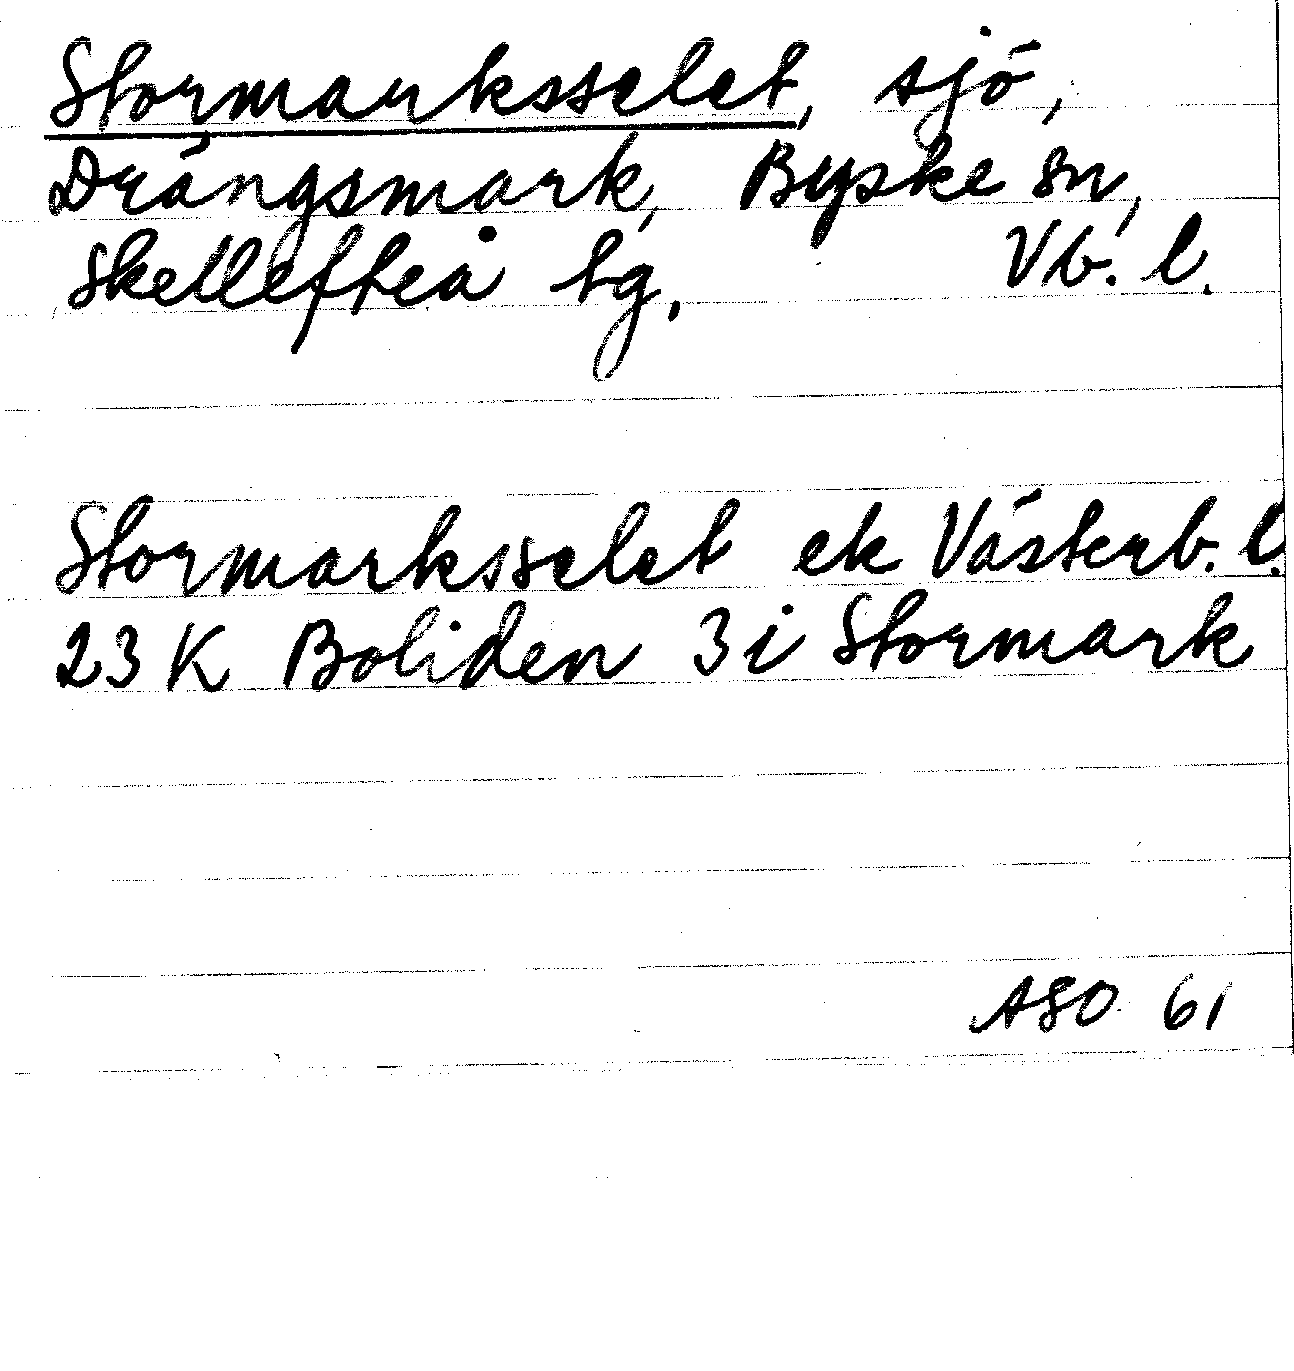 Stormarksselet, sjö,
Drängsmark, Byske sn,
Skellefteå tg. Vb. l.
Stormarksselet ek Västerb. l.
23 K Boliden 3 i Stormark
ASO 61